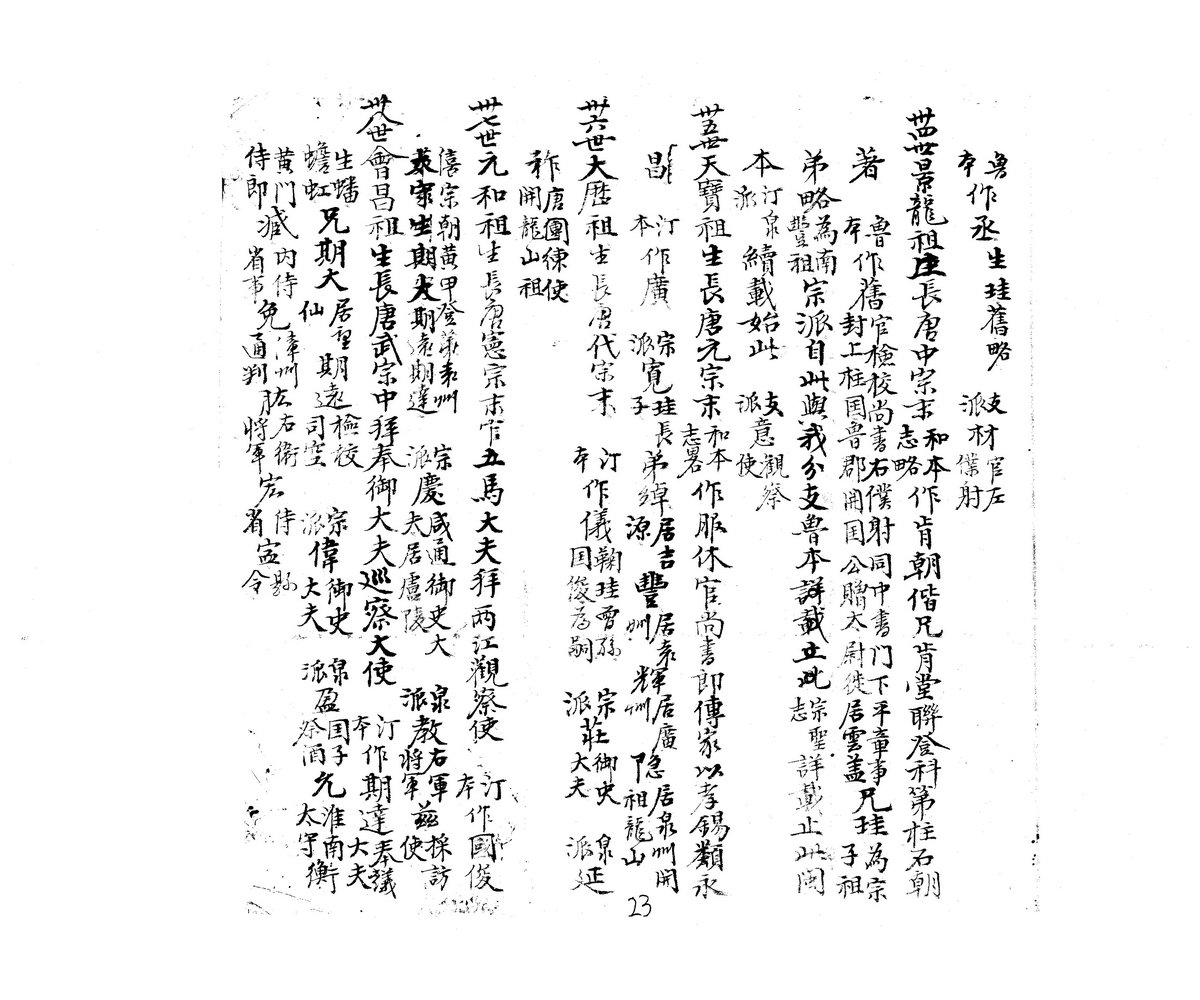 魯本作丞生珪舊略支派材官左僕射
卅四世景龍祖生長唐中宗末和本志略作肯朝偕兄肯堂聯登科第柱石朝
著魯本作舊官檢校尚書右僕射同中書門下平章事封上柱国魯郡開国公贈太尉徙居雲蓋兄珪為宗子祖
弟略為南豐祖宗派自此與我分支魯本詳載止此宗聖志詳載止此閩
本汀泉派續載始此支派意觀察使
卅五世天寶祖生長唐元宗末和本志畧作服休官尚書郎傳家以孝錫類永
昌汀本作廣宗派寬珪子長弟綽居吉源豐居袁州輝居廣州隐居泉州開祖龍山
卅六世大歴祖生長唐代宗末汀本作儀鞠珪曾孫国俊為嗣宗派莊御史大夫泉派延
祚唐團練使開龍山祖
卅七世元和祖生長唐憲宗末官五馬大夫拜两江觀察使汀本作國俊
僖宗朝黄甲登第袁州袁家生期大期遠期達宗派慶咸通御史大夫居盧陵泉派教右軍將軍兹採訪使
卅八世會昌祖生長唐武宗中拜奉御大夫巡察大使汀本作期達奉議大夫
生蟠蟾虹兄期大居聖仙期遠檢校司空宗派偉御史大夫泉派盈国子祭酒允淮南太守衡
黄门侍郎臧内侍省事免漳州通判肱右衛將軍宏侍省寍縣令
23